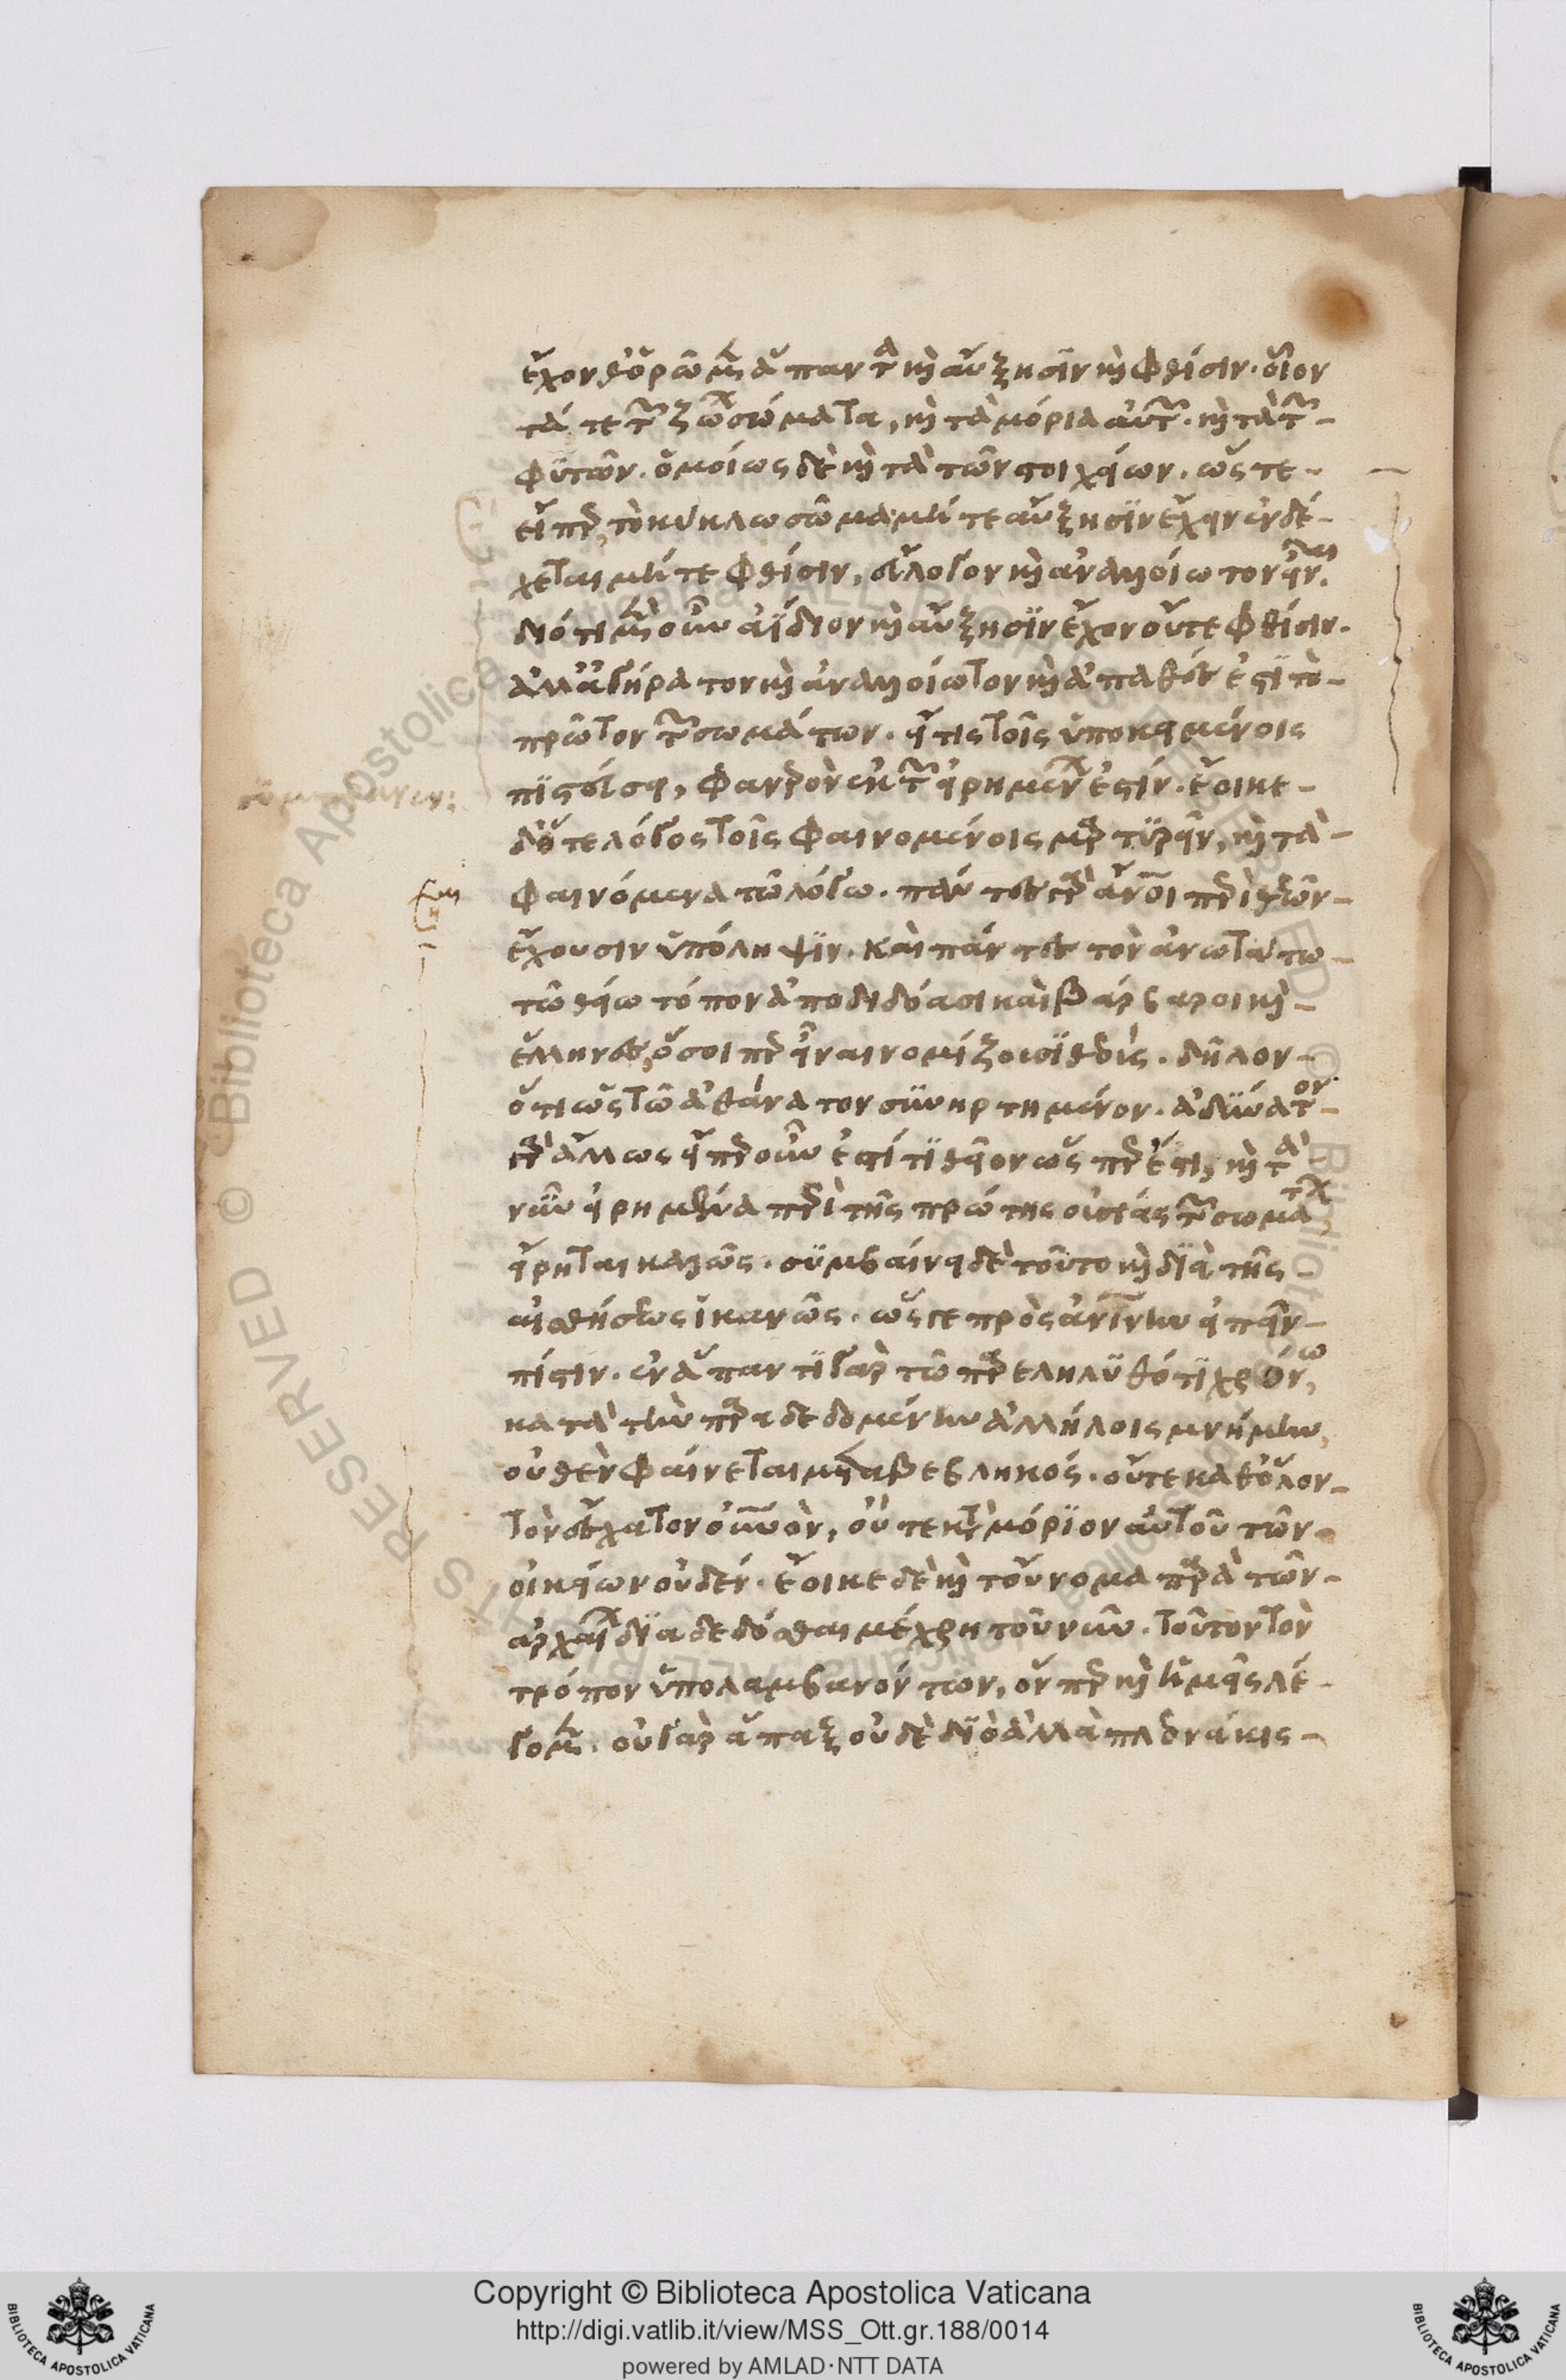 ἔχοντα ὁρῶμεν ἅπαντα καὶ αὔξησιν καὶ φθίσιν· οἷον
τά τε τῶν ζώων σώματα, καὶ τὰ μόρια αὐτῶν· καὶ τὰ τῶν
φυτῶν· ὁμοίως δὲ καὶ τὰ τῶν στοιχείων· ὥστε
εἴπερ τὸ κύκλω σῶμα μήτε αὔξησιν ἔχειν ἐνδέ
χεται μήτε φθίσιν, εὔλογον καὶ ἀναλλοίωτον εἶναι.
διότι μὲν οὖν ἀΐδιον καὶ αὔξησιν ἔχον οὔτε φθίσιν·
ἀλλ' ἀγήρατον καὶ ἀναλλοίωτον καὶ ἀπαθές ἐστι τὸ
πρῶτον τῶν σωμάτων· εἴ τις τοῖς ὑποκειμένοις
πιστεύει, φανερὸν ἐκ τῶν εἰρημένων ἐστίν· ἔοικε
δ' ὅ τε λόγος τοῖς φαινομένοις μαρτυρεῖν, καὶ τὰ
φαινόμενα τῶ λόγω· πάντες γὰρ ἄνθρωποι περὶ θεῶν
ἔχουσιν ὑπόληψιν· καὶ πάντες τὸν ἀνωτάτω
τῶ θείω τόπον ἀποδιδόασι καὶ βάρβαροι καὶ
ἕλληνες, ὅσοι περ εἶναι νομίζουσι θεούς· δῆλον
ὅτι ὡς τῶ ἀθανάτω τὸ ἀθάνατον συνηρτημένον· ἀδύνατον
γὰρ ἄλλως εἴπερ οὖν ἐστί τι θεῖον ὥσπερ ἔστι, καὶ τὰ
νῦν εἰρημένα περὶ τῆς πρώτης οὐσίας τῶν σωμάτων,
εἴρηται καλῶς· συμβαίνει δὲ τοῦτο καὶ διὰ τῆς
αἰσθήσεως ἱκανῶς· ὥς γε πρὸς ἀνθρωπίνην εἰπεῖν
πίστιν· ἐν ἅπαντι γὰρ τῶ παρεληλυθότι χρόνω,
κατὰ τὴν παραδεδομένην ἀλλήλοις μνήμην,
οὐθὲν φαίνεται μεταβεβληκός· οὔτε καθ' ὅλον
τὸν ἔσχατον οὐρανόν, οὔτε κατὰ μόριον αὐτοῦ τῶν
οἰκείων οὐδέν· ἔοικε δὲ καὶ τοὔνομα παρὰ τῶν
ἀρχαίων διαδεδόσθαι μέχρι τοῦ νῦν· τοῦτον τὸν
τρόπον ὑπολαμβανόντων, ὅνπερ καὶ ἡμεῖς λέ
γομεν· οὐ γὰρ ἅπαξ οὐδὲ δὶς ἀλλὰ πλεονάκις
Copyright © Biblioteca Apostolica Vaticana
http://digi.vatlib.it/view/MSS_Ott.gr.188/0014
powered by AMLAD·NTT DATA